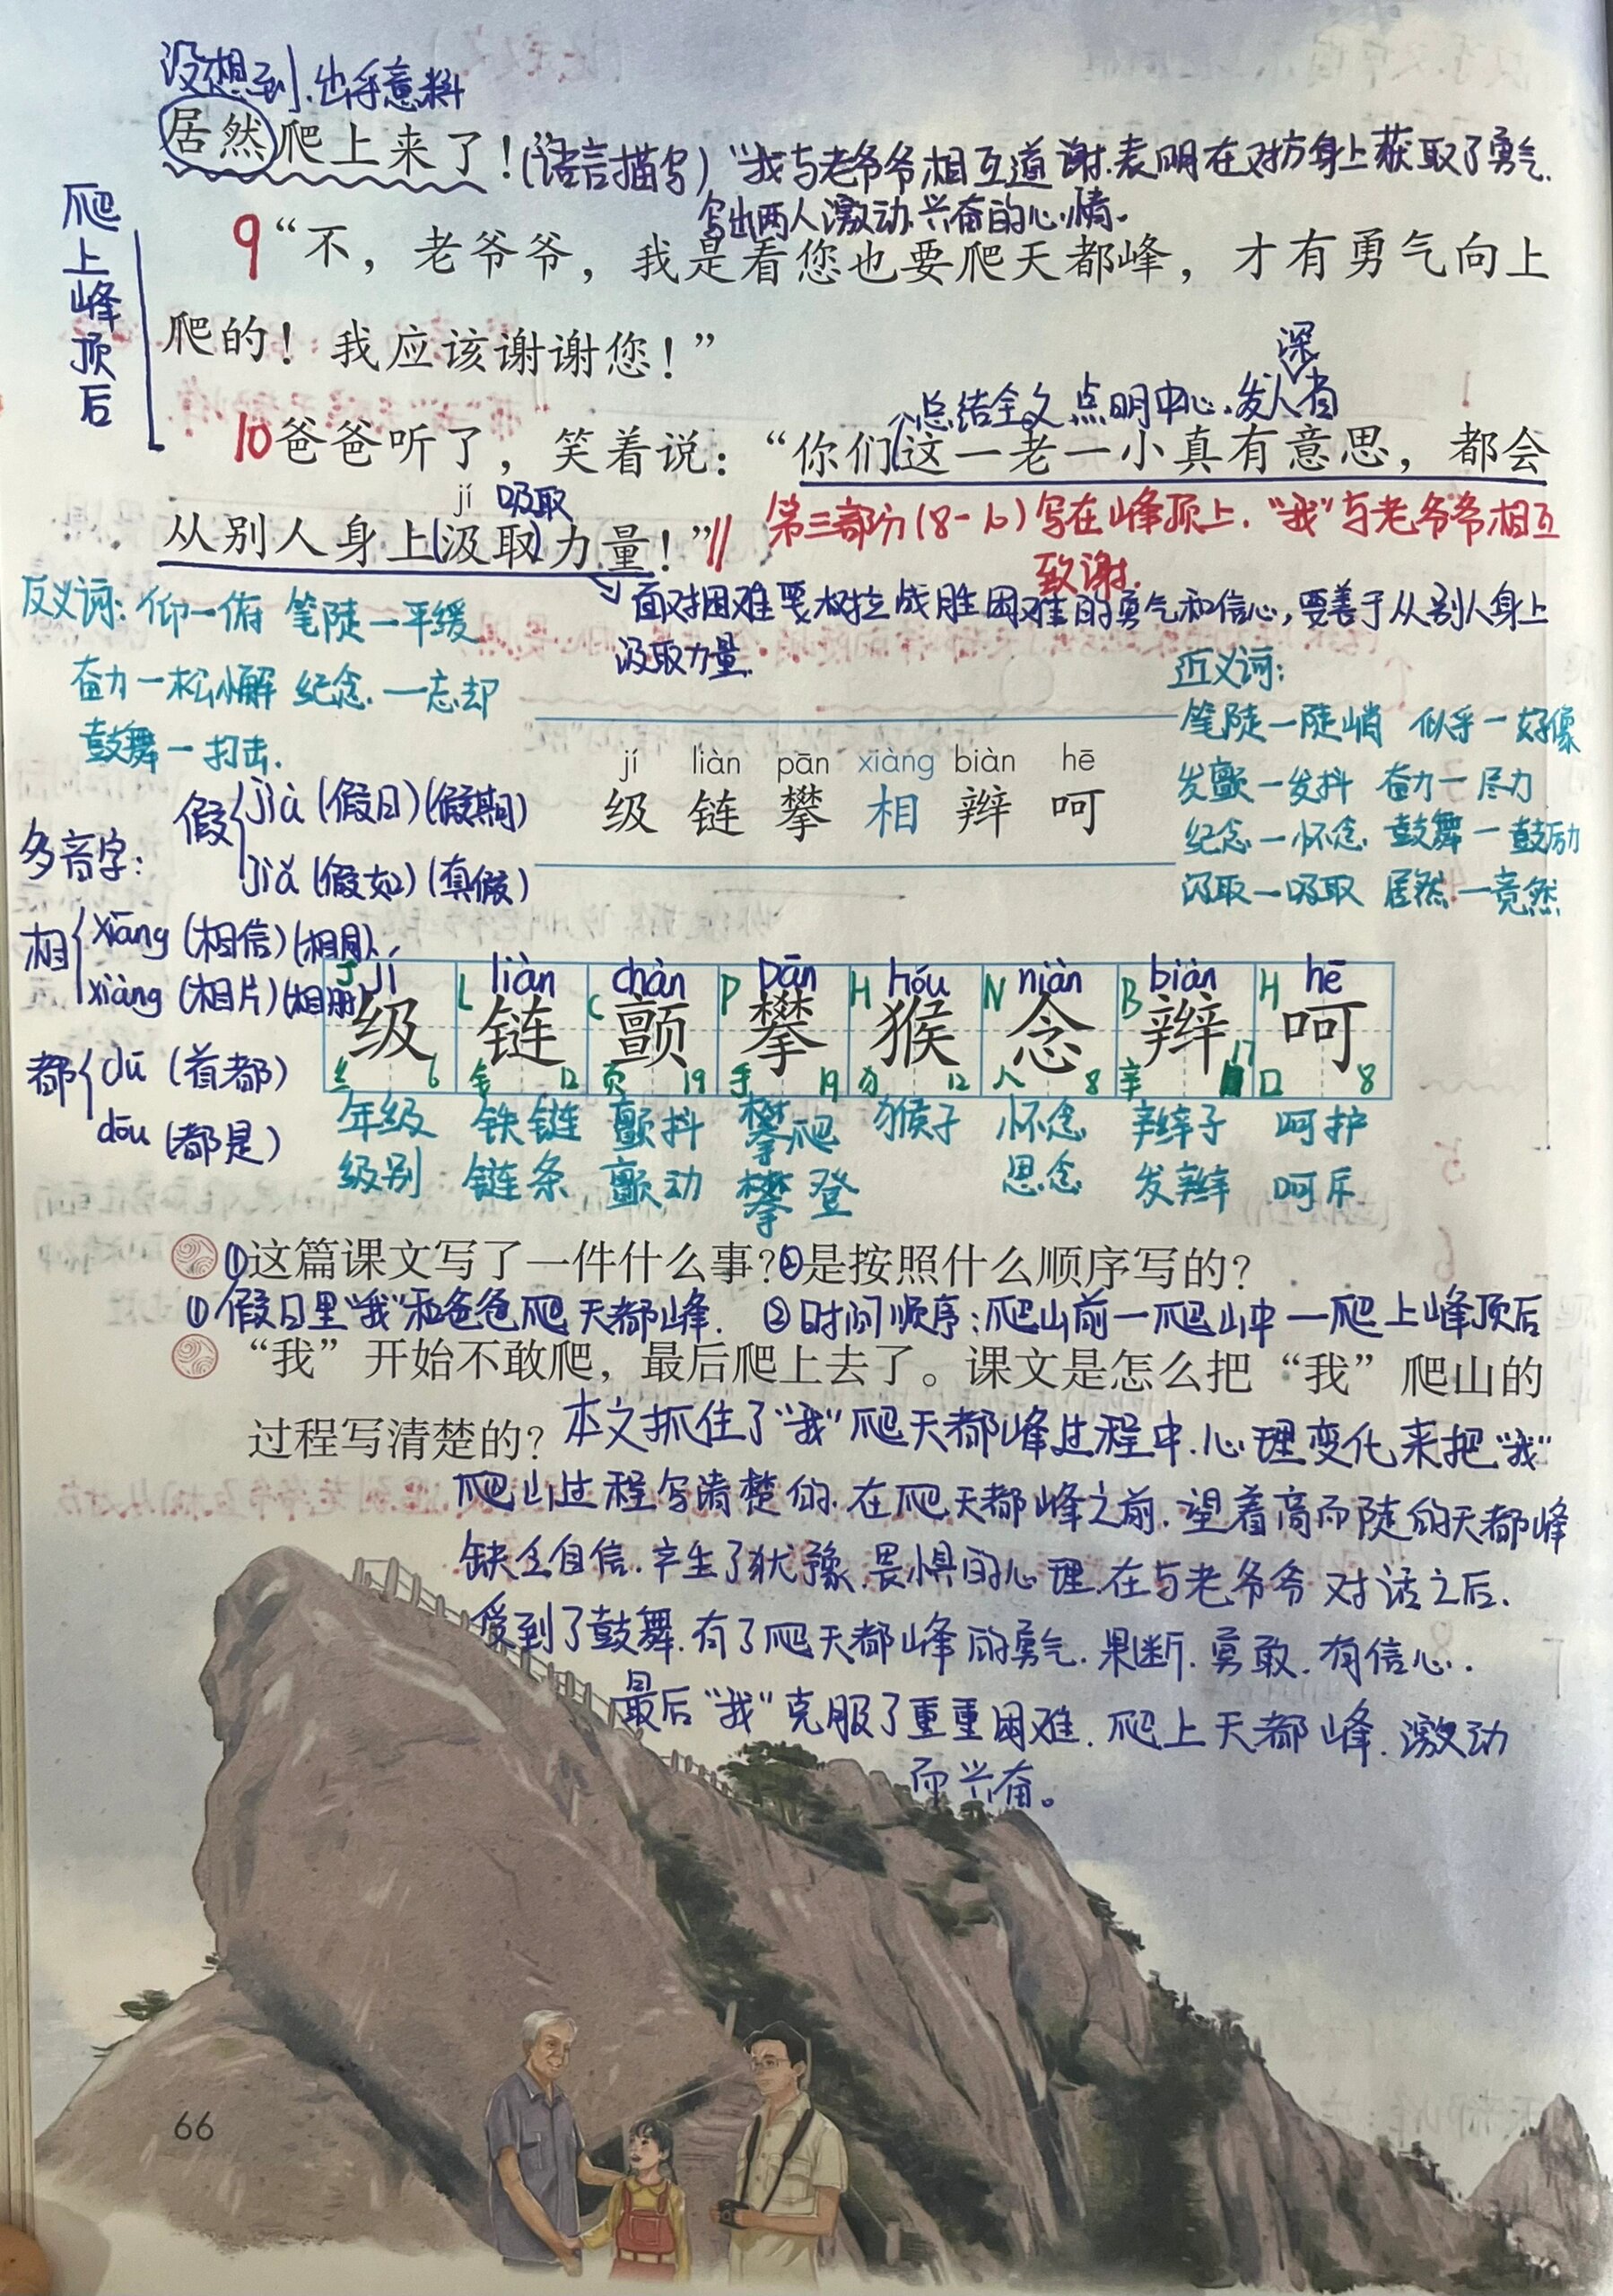 没想到、出乎意料
居然爬上来了！”(语言描写) “我与老爷爷相互道谢.表明在对方身上获取了勇气.
写出两人激动.兴奋的心情。
爬上峰顶后
9 “不，老爷爷，我是看您也要爬天都峰，才有勇气向上
爬的！我应该谢谢您！”
总结全文 点明中心.发人深省
10 爸爸听了，笑着说：“你们这一老一小真有意思，都会
jí 吸取
从别人身上汲取力量！”∥ 第三部分(8-10)写在峰顶上.“我”与老爷爷相互
致谢.
面对困难要树立战胜困难的勇气和信心,要善于从别人身上
汲取力量.
反义词: 仰一俯 笔陡一平缓
奋力一松懈 纪念.一忘却
鼓舞一打击.
近义词:
笔陡一陡峭 似乎一好像
发颤一发抖 奋力一尽力
纪念一怀念. 鼓舞一鼓励
汲取一吸取 居然一竟然
jí liàn pān xiàng biàn hē
级 链 攀 相 辫 呵
多音字:
假 jià (假日)(假期)
jiǎ (假如)(真假)
相 xiāng (相信)(相同)
xiàng (相片)(相册)
都 dū (首都)
dōu (都是)
J jí L liàn C chàn P pān H hóu N niàn B biàn H hē
级 链 颤 攀 猴 念 辫 呵
纟 6 钅 12 页 19 手 19 犭 12 人 8 辛 17 口 8
年级 铁链 颤抖 攀爬 猴子 怀念 辫子 呵护
级别 链条 颤动 攀登 思念 发辫 呵斥
①这篇课文写了一件什么事？②是按照什么顺序写的？
① 假日里“我”和爸爸爬天都峰. ②时间顺序:爬山前一爬山中一爬上峰顶后
“我”开始不敢爬，最后爬上去了。课文是怎么把“我”爬山的
过程写清楚的？ 本文抓住了“我”爬天都峰过程中.心理变化来把“我”
爬山过程写清楚的.在爬天都峰之前.望着高而陡的天都峰
缺乏自信.产生了犹豫.畏惧的心理.在与老爷爷对话之后.
受到了鼓舞.有了爬天都峰的勇气.果断.勇敢.有信心.
最后“我”克服了重重困难.爬上天都峰.激动
而兴奋。
66